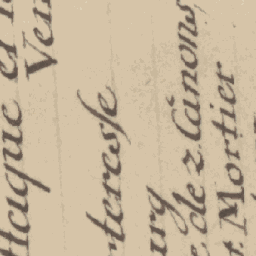 ttaque et
Ven
teresse
urg
de 2 Canons
Mortier